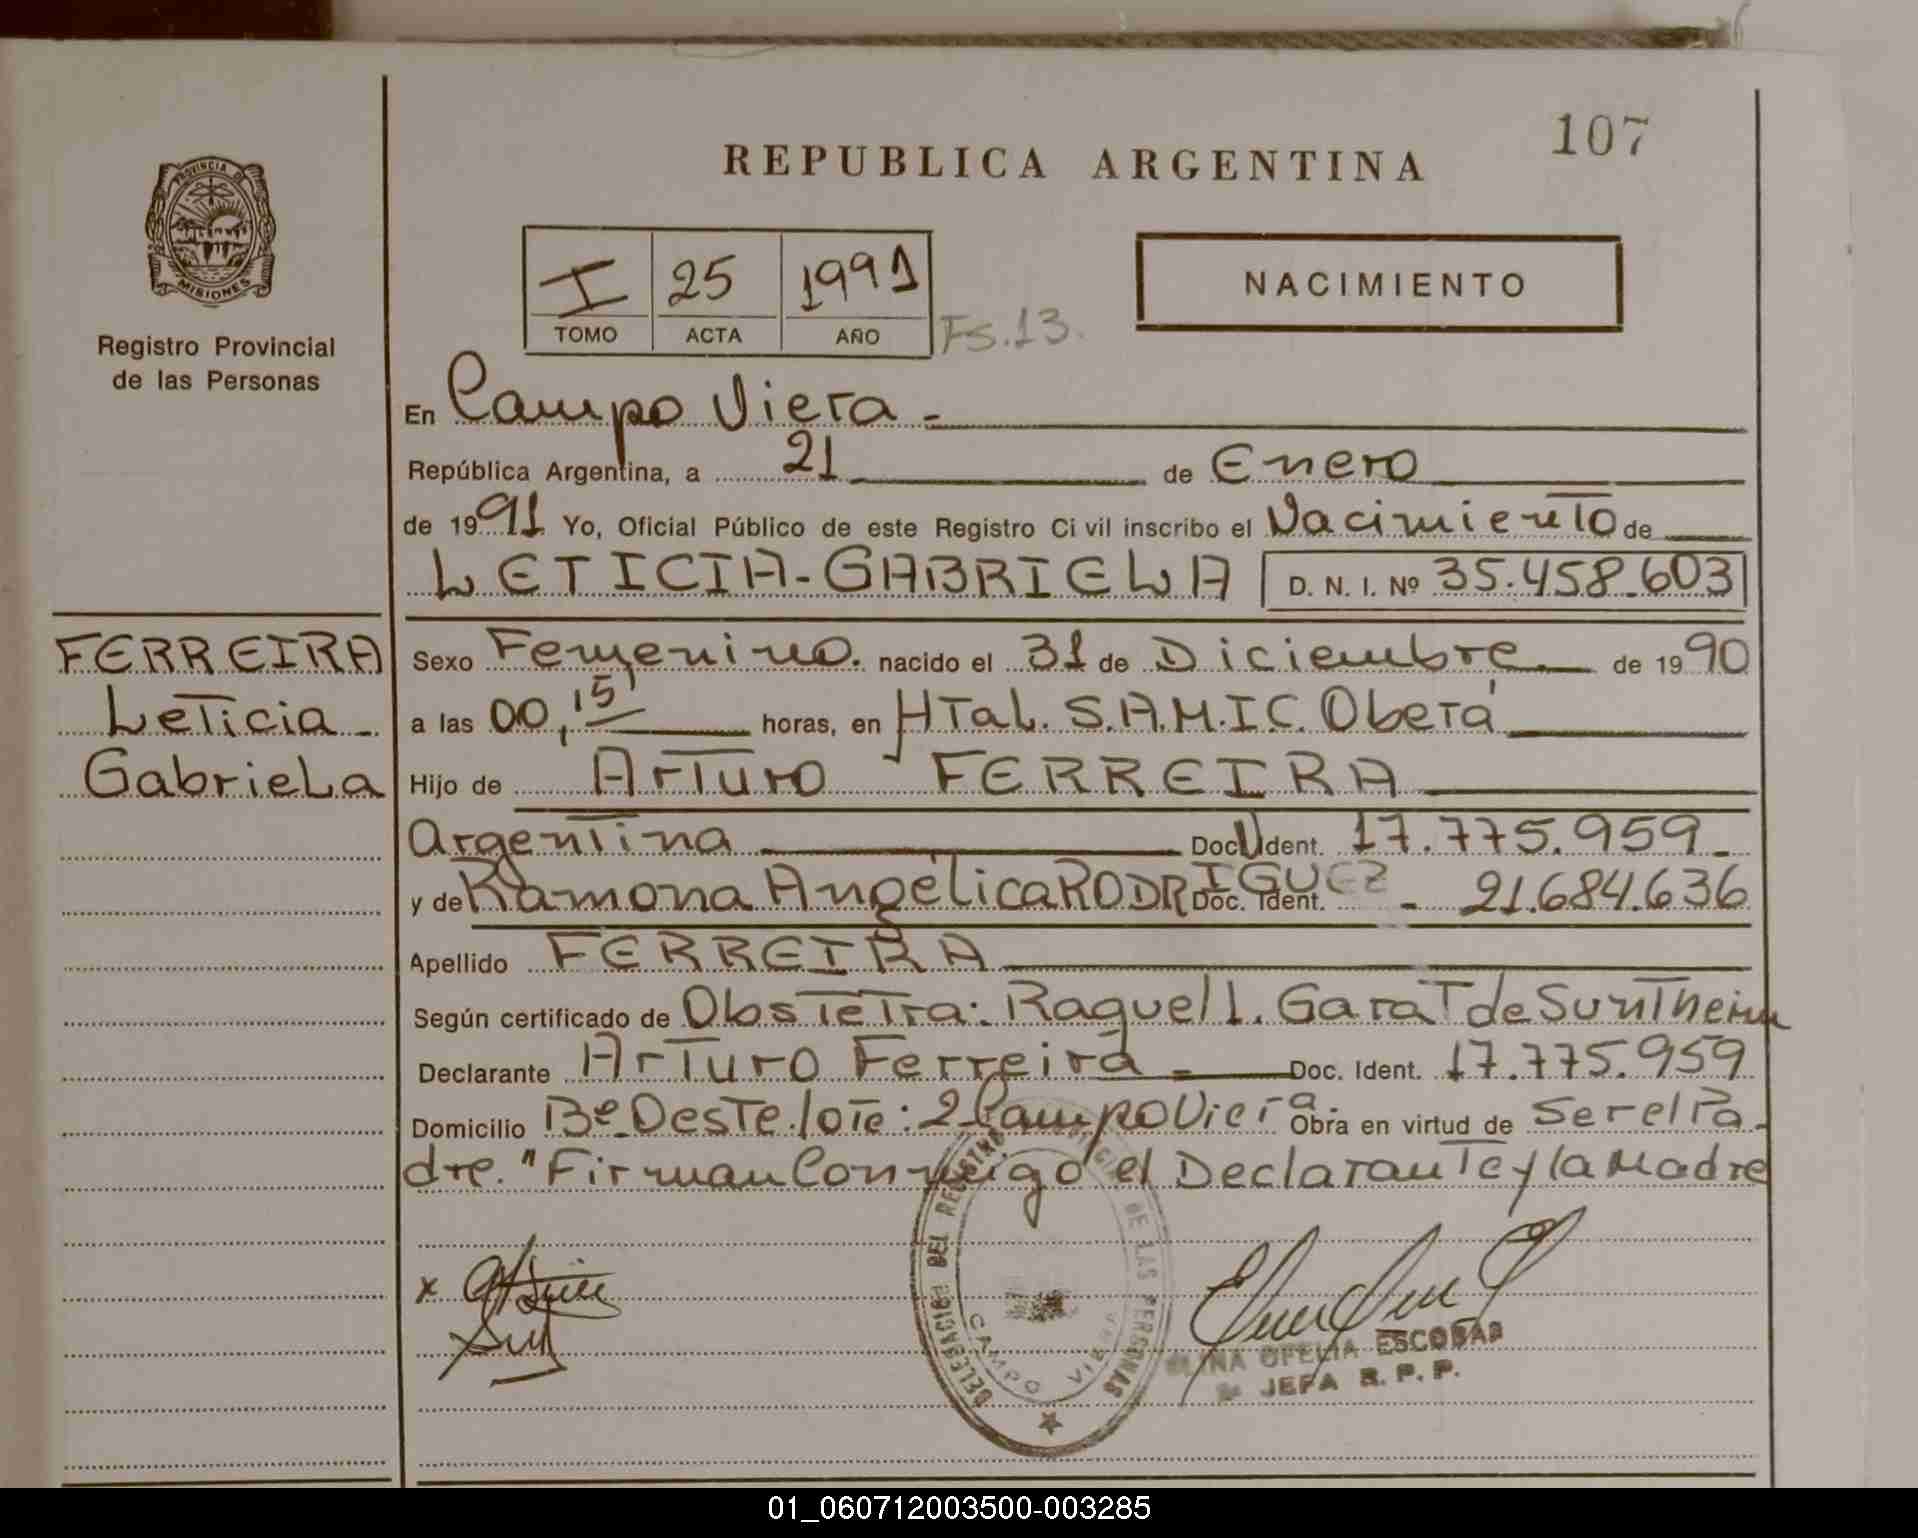 107
REPUBLICA ARGENTINA
PROVINCIA DE
MISIONES
Registro Provincial
de las Personas
I 25 1991
TOMO ACTA AÑO
Fs. 13.
NACIMIENTO
En Campo Viera -
República Argentina, a 21 de Enero
de 1991 Yo, Oficial Público de este Registro Civil inscribo el Nacimiento de
LETICIA-GABRIELA D. N. I. Nº 35.458.603
FERREIRA
Leticia
Gabriela
Sexo Femenino. nacido el 31 de Diciembre de 1990
a las 00,15' horas, en HTal. S.A.M.I.C. Oberá
Hijo de Arturo FERREIRA
Argentina Doc. Ident. 17.775.959
y de Ramona Angélica RODRIGUEZ Doc. Ident. - 21.684.636
Apellido FERREIRA
Según certificado de Obstetra: Raquel L. Garat de
Declarante Arturo Ferreira - Doc. Ident. 17.775.959
Domicilio Bº Oeste lote: 2 Campo Viera. Obra en virtud de Ser el Pa-
dre. "Firman Conmigo el Declarante y la Madre
x
DELEGACION DEL REGISTRO PROVINCIAL DE LAS PERSONAS
CAMPO VIERA
ELINA OFELIA ESCOBAR
JEFA R. P. P.
01_060712003500-003285